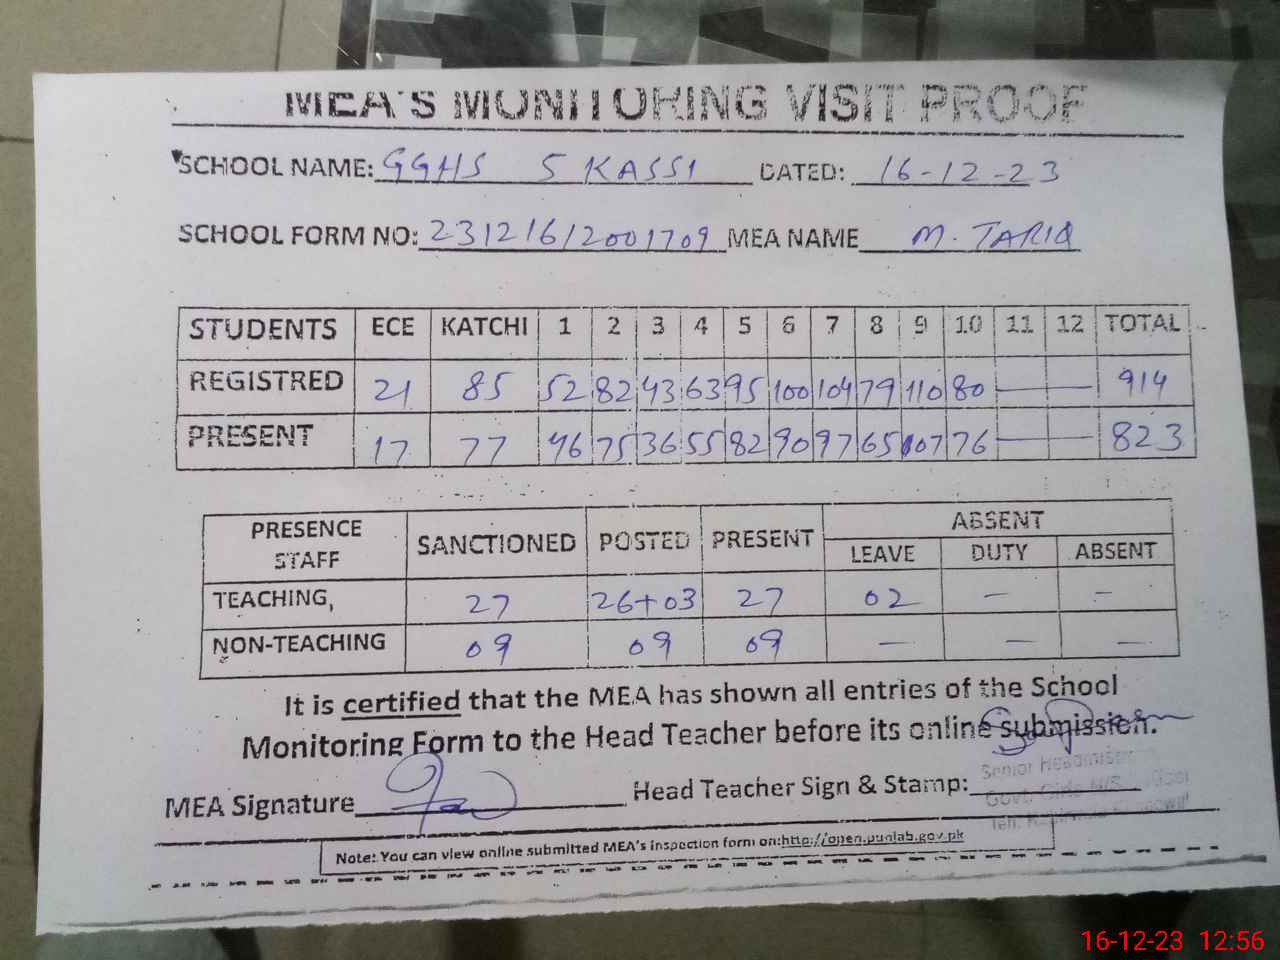 MEA'S MONITORING VISIT PROOF
SCHOOL NAME: GGHS 5 KASSI DATED: 16-12-23
SCHOOL FORM NO: 231216/2001709 MEA NAME M. TARIQ
STUDENTS ECE KATCHI 1 2 3 4 5 6 7 8 9 10 11 12 TOTAL
REGISTRED 21 85 52 82 43 63 95 100 104 79 110 80 — — 914
PRESENT 17 77 46 75 36 55 82 90 97 65 107 76 — — 823
PRESENCE STAFF SANCTIONED POSTED PRESENT ABSENT
LEAVE DUTY ABSENT
TEACHING, 27 26+03 27 02 — —
NON-TEACHING 09 09 09 — — —
It is certified that the MEA has shown all entries of the School
Monitoring Form to the Head Teacher before its online submission.
MEA Signature Head Teacher Sign & Stamp:
Senior Headmistress
Govt. Girls
Note: You can view online submitted MEA's inspection form on:http://open.punjab.gov.pk
16-12-23 12:56